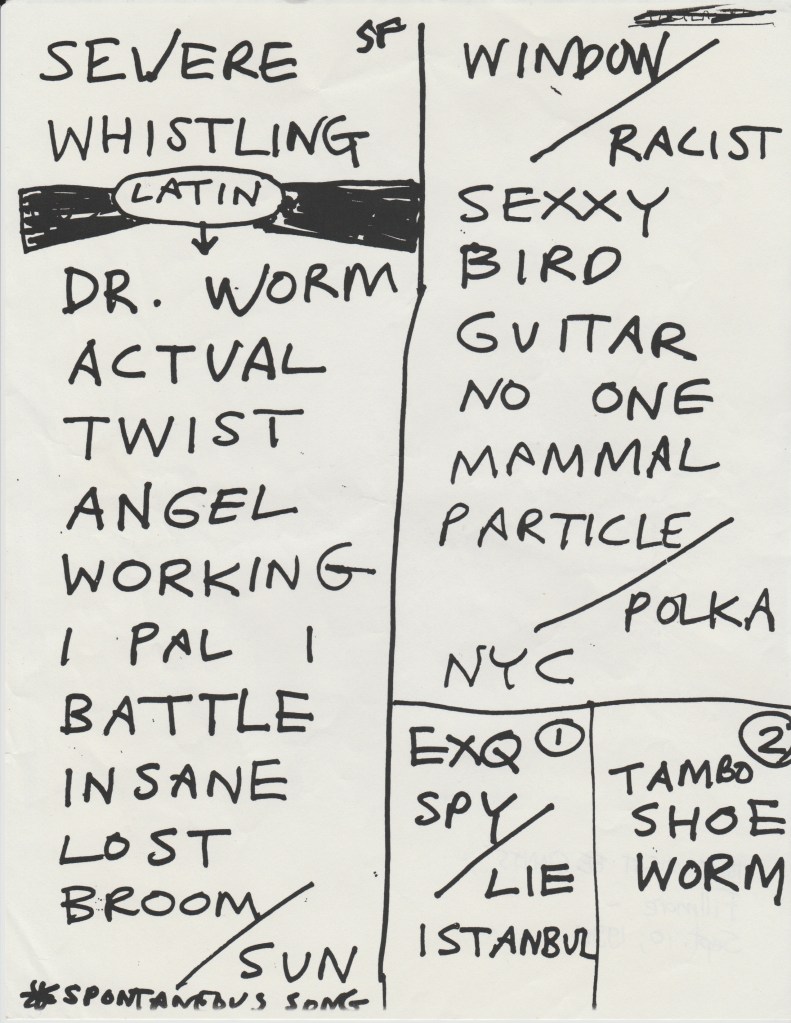 SF
SEVERE
WHISTLING
LATIN
DR. WORM
ACTUAL
TWIST
ANGEL
WORKING
I PAL I
BATTLE
INSANE
LOST
BROOM
SUN
*SPONTANEOUS SONG
WINDOW
RACIST
SEXXY
BIRD
GUITAR
NO ONE
MAMMAL
PARTICLE
POLKA
NYC
EXQ 1
SPY
LIE
ISTANBUL
2
TAMBO
SHOE
WORM